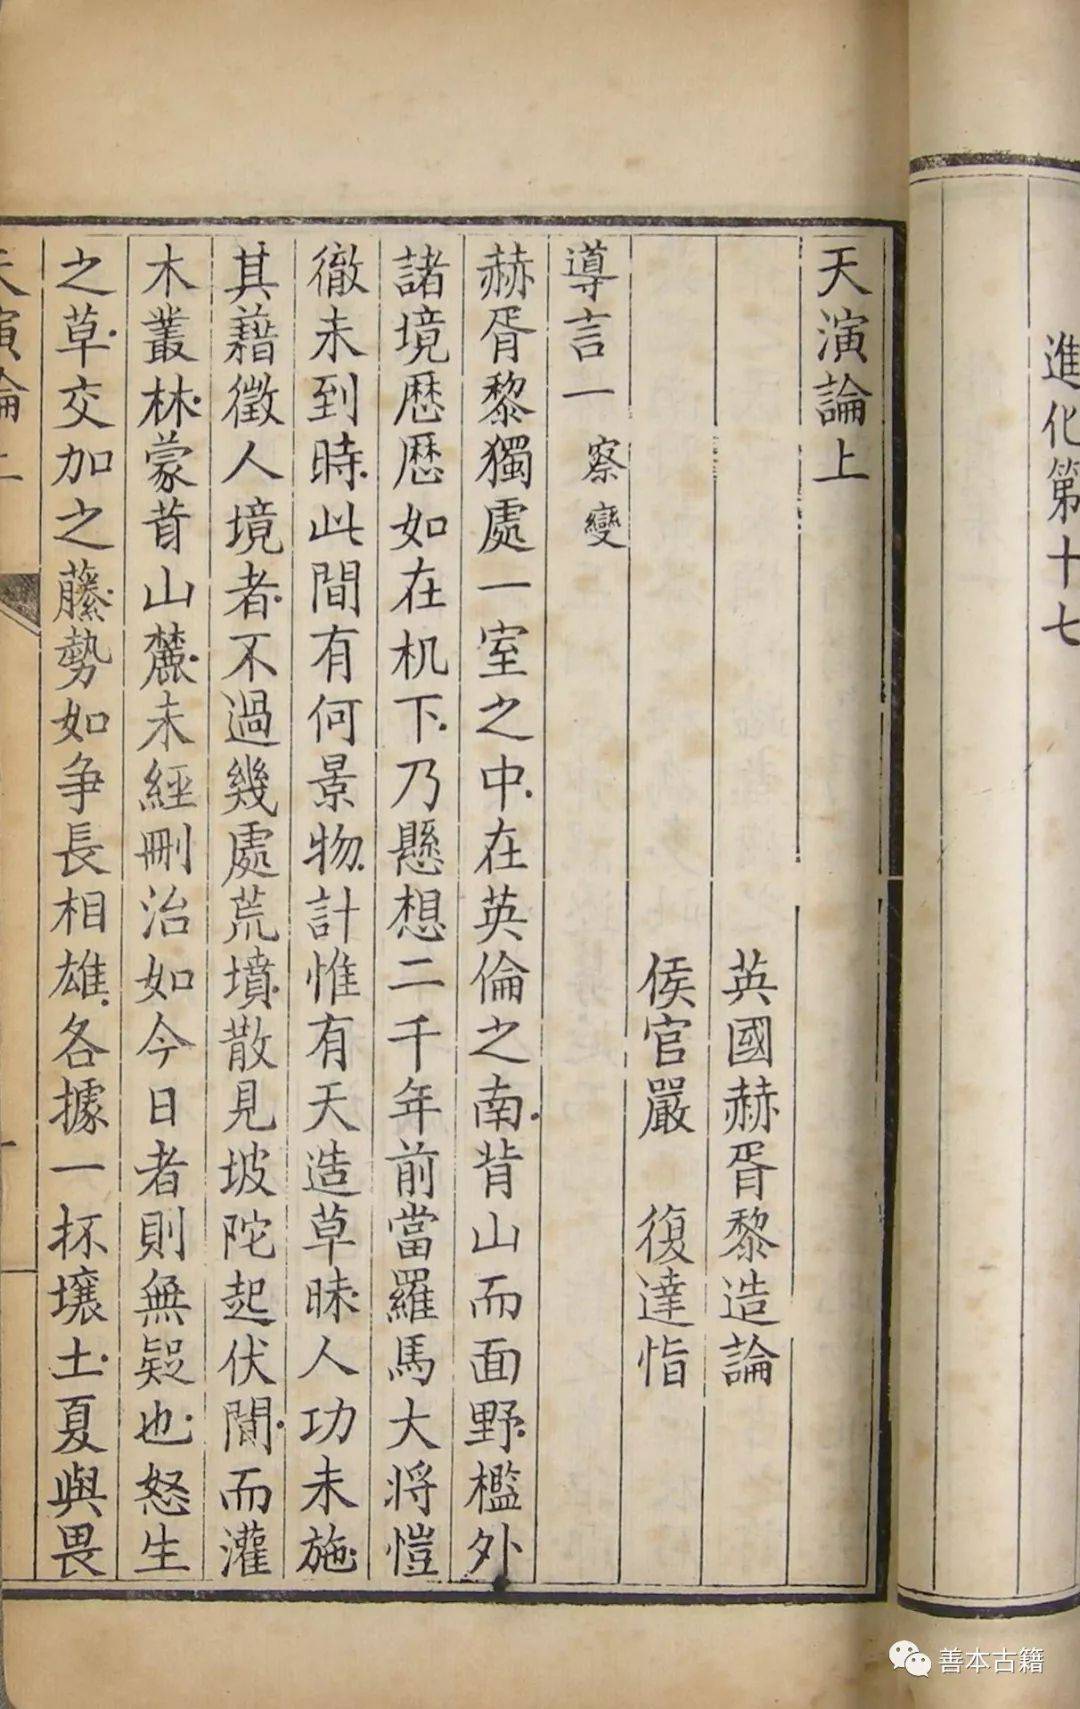 進化第十七
天演論上
英國赫胥黎造論
侯官嚴　復達恉
導言一　察變
赫胥黎獨處一室之中.在英倫之南.背山而面野.檻外
諸境歷歷如在机下.乃懸想二千年前當羅馬大將愷
徹未到時.此間有何景物.計惟有天造草昧.人功未施.
其藉徵人境者.不過幾處荒墳.散見坡陀起伏間.而灌
木叢林.蒙茸山麓.未經刪治如今日者則無疑也.怒生
之草.交加之藤.勢如爭長相雄.各據一抔壤土.夏與畏
天演論上
一
善本古籍